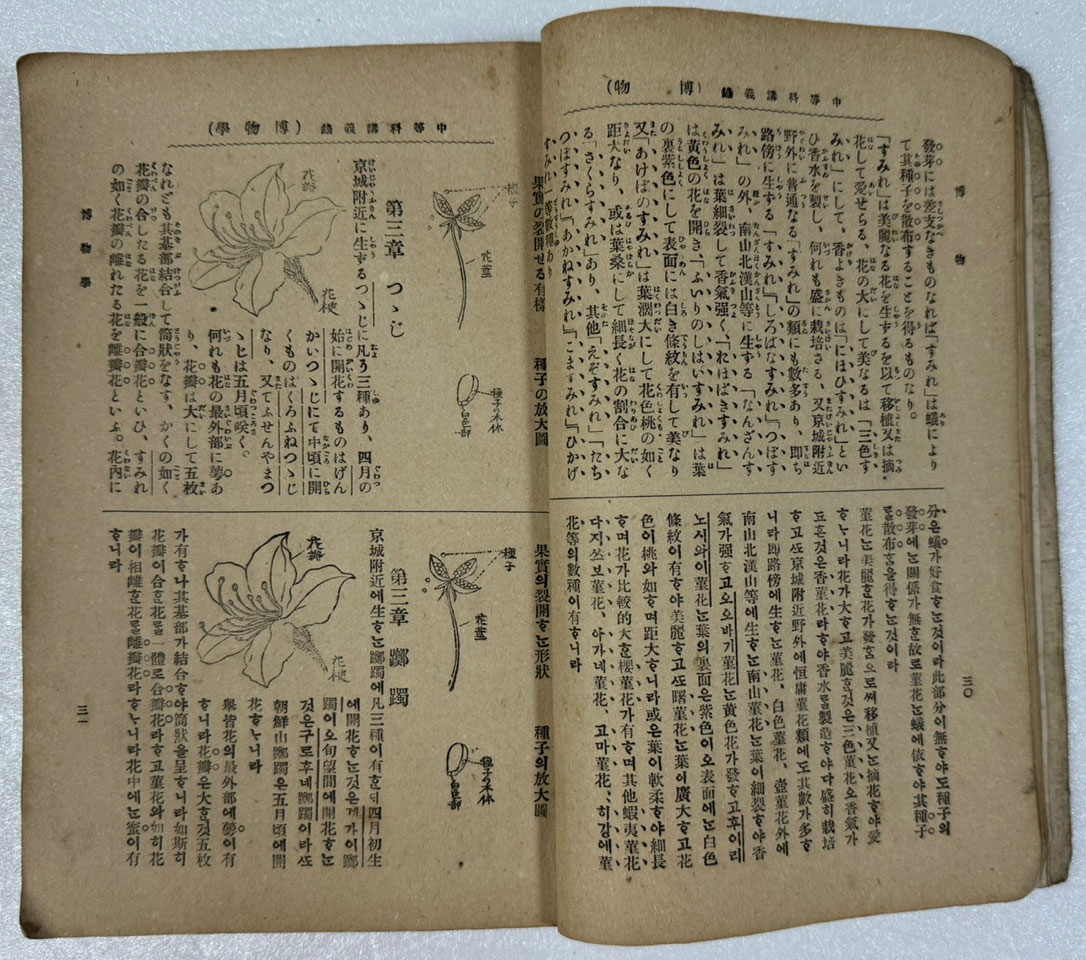 中等科講義錄 (博 物)
博 物
三〇
發芽には差支なきものなれば「すみれ」は蟻により
て其種子を散布することを得るものなり。
「すみれ」は美麗なる花を生ずるを以て移植又は摘
花して愛せらる、花の大にして美なるは「三色す
みれ」にして、香よきものは「にほひすみれ」とい
ひ香水を製し、何れも盛に栽培さる、又京城附近
野外に普通なる「すみれ」の類にも數多あり、即ち
路傍に生ずる「すみれ」「しろばなすみれ」「つぼす
みれ」の外、南山北漢山等に生ずる「なんざんす
みれ」は葉細裂して香氣强く、「おほばきすみれ」
は黃色の花を開き「ふいりのしはいすみれ」は葉
の裏紫色にして表面には白き條紋を有して美なり
又「あけぼのすみれ」は葉濶大にして花色桃の如く
距大なり、或は葉柔にして細長く花の割合に大な
る「さくらすみれ」あり、其他「えぞすみれ」「たち
つぼすみれ」「あかねすみれ」「こますみれ」「ひかげ
すみれ」等數種あり
分은蟻가好食ᄒᆞᄂᆞᆫ것이라此部分이無ᄒᆞ야도種子의
發芽에ᄂᆞᆫ關係가無ᄒᆞᆫ故로菫花ᄂᆞᆫ蟻에依ᄒᆞ야其種子
ᄅᆞᆯ散布ᄒᆞᆷ을得ᄒᆞᄂᆞᆫ것이라
菫花ᄂᆞᆫ美麗ᄒᆞᆫ花가發ᄒᆞᆷ으로써移植又ᄂᆞᆫ摘花ᄒᆞ야愛
ᄒᆞᄂᆞ니라花가大ᄒᆞ고美麗ᄒᆞᆫ것은三色菫花오香氣가
됴흔것은香菫花라ᄒᆞ야香水ᄅᆞᆯ製造ᄒᆞ야다盛히栽培
ᄒᆞ고ᄯᅩ京城附近野外에恒庸菫花類에도其數가多ᄒᆞ
니라即路傍에生ᄒᆞᄂᆞᆫ菫花、白色菫花、壺菫花外에
南山北漢山等에生ᄒᆞᄂᆞᆫ南山菫花ᄂᆞᆫ葉이細裂ᄒᆞ야香
氣가强ᄒᆞ고오오바기菫花ᄂᆞᆫ黃色花가發ᄒᆞ고후이리
노시와이菫花ᄂᆞᆫ葉의裏面은紫色이오表面에ᄂᆞᆫ白色
條紋이有ᄒᆞ야美麗ᄒᆞ고ᄯᅩ曙菫花ᄂᆞᆫ葉이廣大ᄒᆞ고花
色이桃와如ᄒᆞ며距大ᄒᆞ니라或은葉이軟柔ᄒᆞ야細長
ᄒᆞ며花가比較的大ᄒᆞᆫ櫻菫花가有ᄒᆞ며其他蝦夷菫花
다지쓰보菫花、아가네菫花、고마菫花、히강에菫
花等의數種이有ᄒᆞ니라
中等科講義錄 (博物學)
種子
花莖
果實の裂開せる有樣
種子の本体
白色部
種子の放大圖
第三章 つゝじ
京城附近に生ずるつゝじに凡そ三種あり、四月の
始に開花するものはげん
かいつゝじにて中頃に開
くものはくろふねつゝじ
なり、又てふせんやまつ
ゝじは五月頃咲く。
何れも花の最外部に萼あ
り、花瓣は大にして五枚
花瓣
花梗
なれども其基部結合して筒狀をなす、かくの如く
花瓣の合したる花を一般に合瓣花といひ、すみれ
の如く花瓣の離れたる花を離瓣花といふ。花內に
種子
花莖
果實의裂開ᄒᆞᄂᆞᆫ形狀
種子の本体
白色部
種子의放大圖
第三章 躑躅
京城附近에生ᄒᆞᄂᆞᆫ躑躅에凡三種이有ᄒᆞᆫᄃᆡ四月初生
에開花ᄒᆞᄂᆞᆫ것은게가이躑
躅이오旬望間에開花ᄒᆞᄂᆞᆫ
것은구로후네躑躅이라ᄯᅩ
朝鮮山躑躅은五月頃에開
花ᄒᆞᄂᆞ니라
擧皆花의最外部에萼이有
ᄒᆞ니라花瓣은大ᄒᆞᆫ것五枚
花瓣
花梗
가有ᄒᆞ나其基部가結合ᄒᆞ야筒狀을呈ᄒᆞ니라如斯히
花瓣이合ᄒᆞᆫ花ᄅᆞᆯ一體로合瓣花라ᄒᆞ고菫花와如히花
瓣이相離ᄒᆞᆫ花ᄅᆞᆯ離瓣花라ᄒᆞᄂᆞ니라花中에ᄂᆞᆫ蜜이有
ᄒᆞ니라
博物學
三一